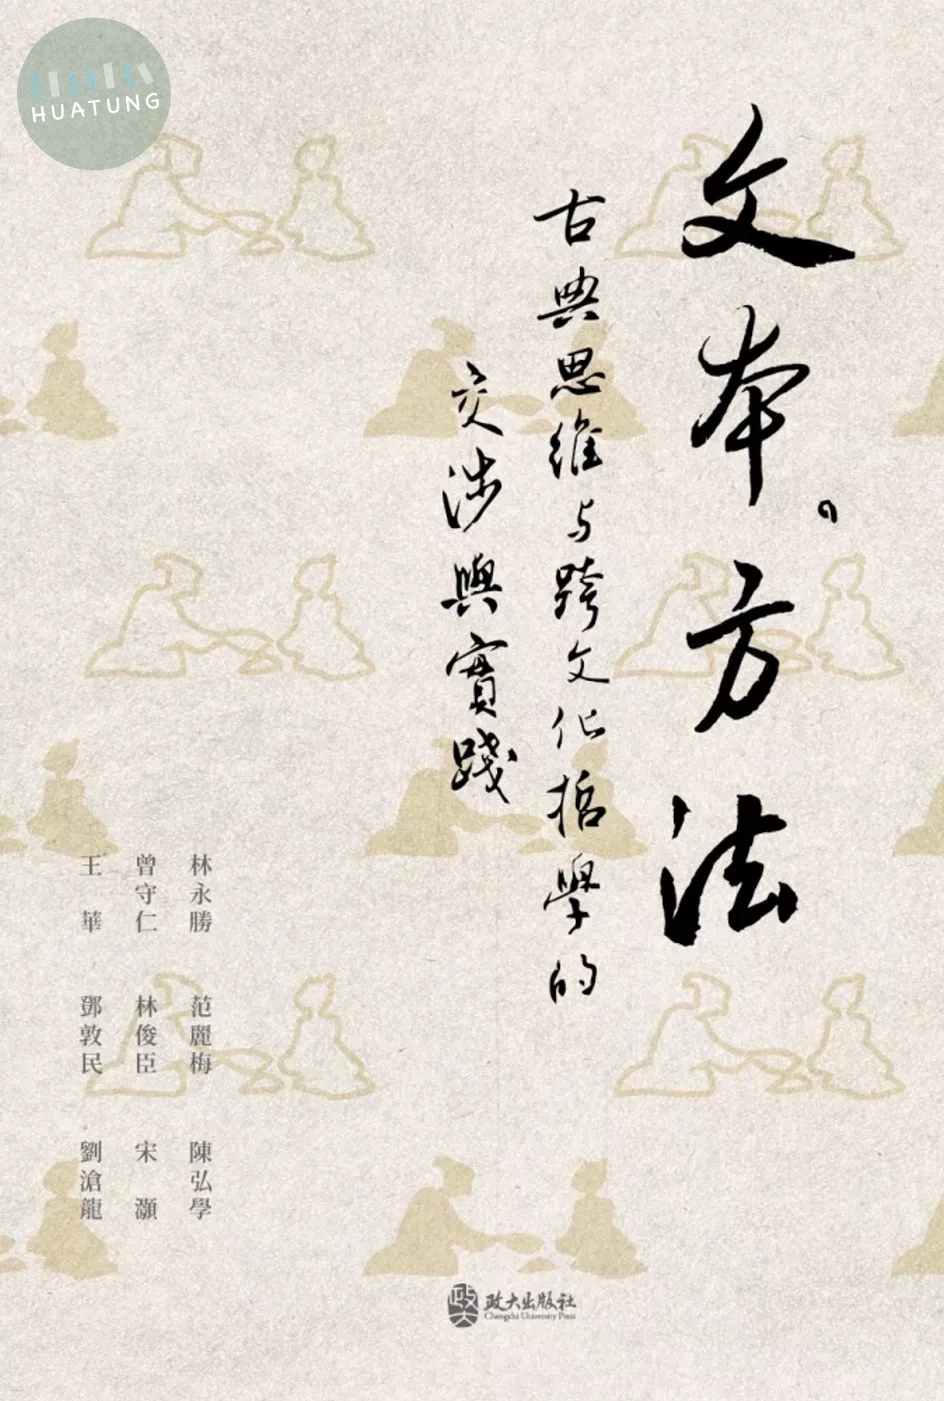 HUATUNG
文本。方法
古典思維与跨文化哲學的
交涉與實踐
林永勝 范麗梅 陳弘學
曾守仁 林俊臣 宋灝
王華 鄧敦民 劉滄龍
政大
政大出版社
Chengchi University Press